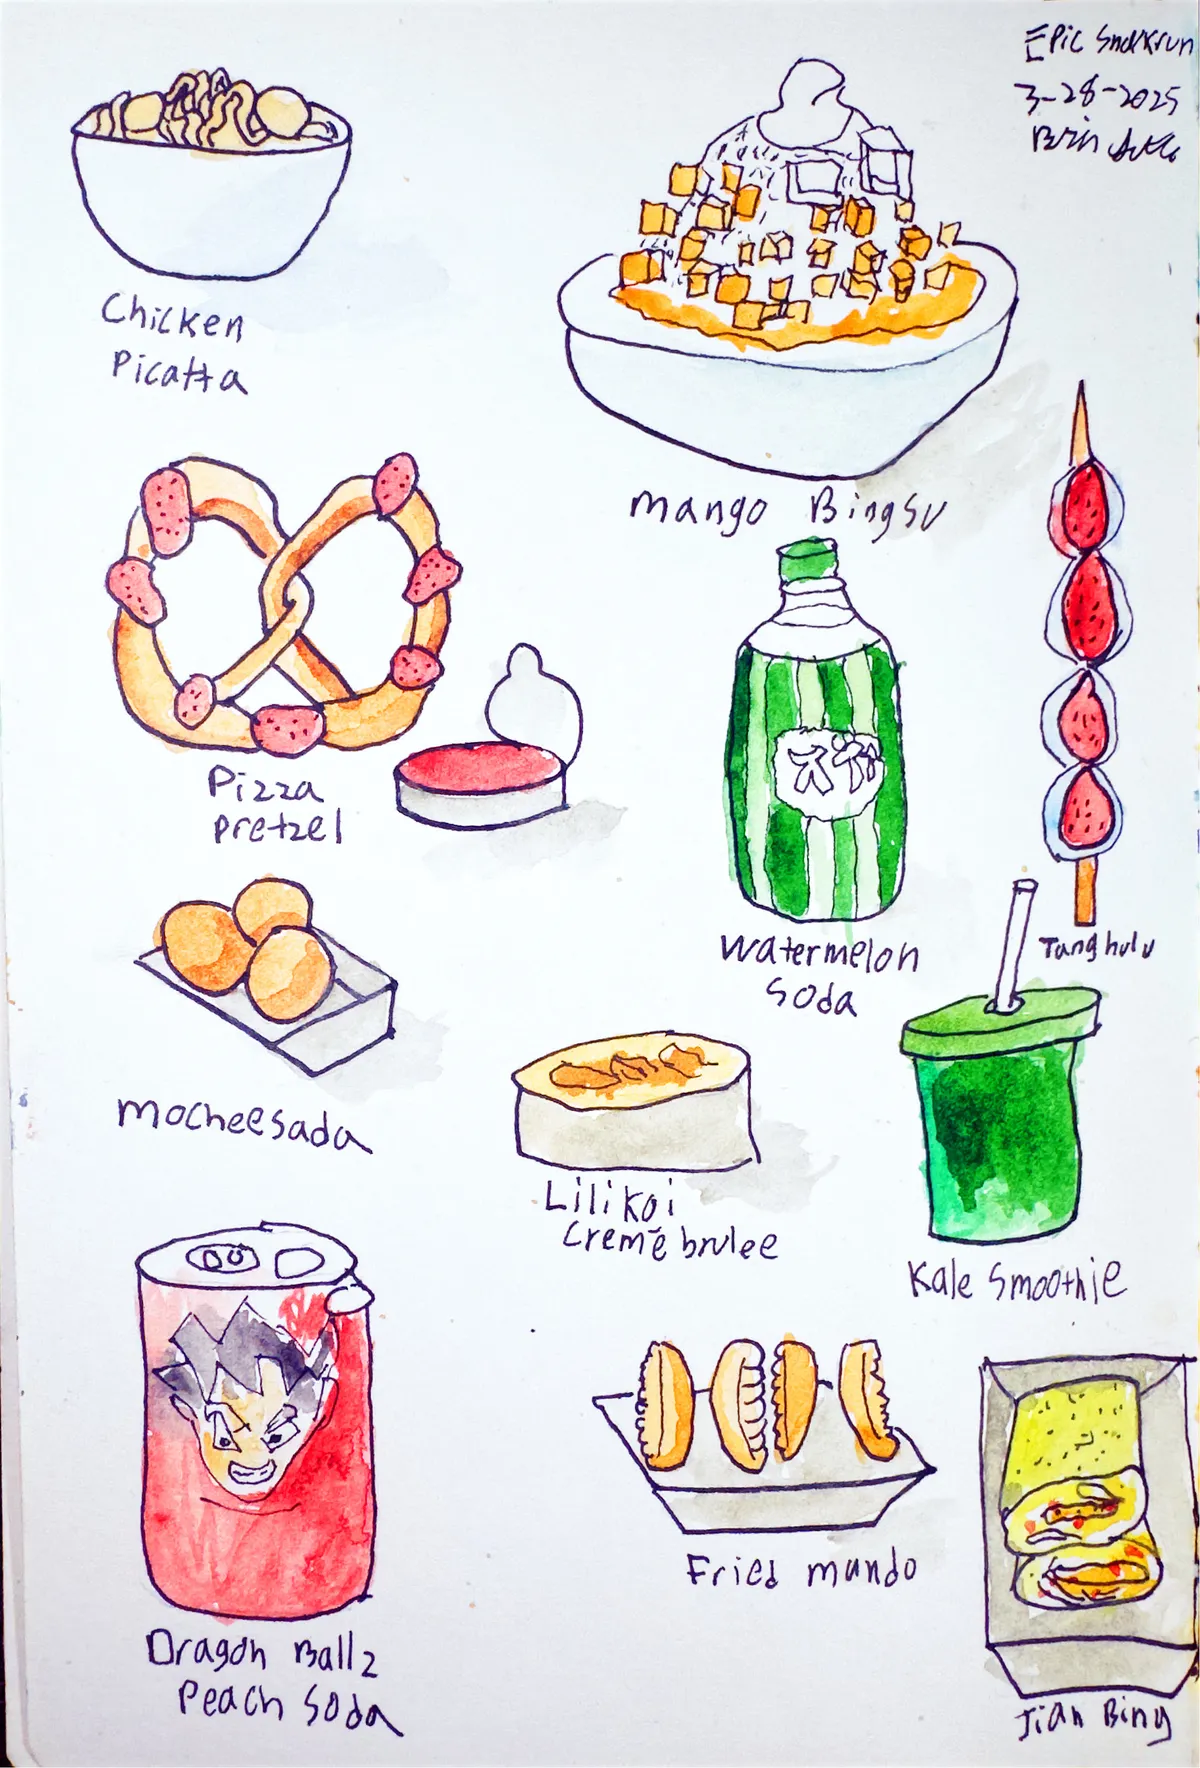 Epic Snakrun
3-28-2025
Chicken
Picatta
mango Bingsu
Pizza
pretzel
Watermelon
Soda
Tanghulu
mocheesada
Lilikoi
Cremē brulee
Kale Smoothie
Dragon Ball Z
Peach Soda
Fried mundo
Jian Bing